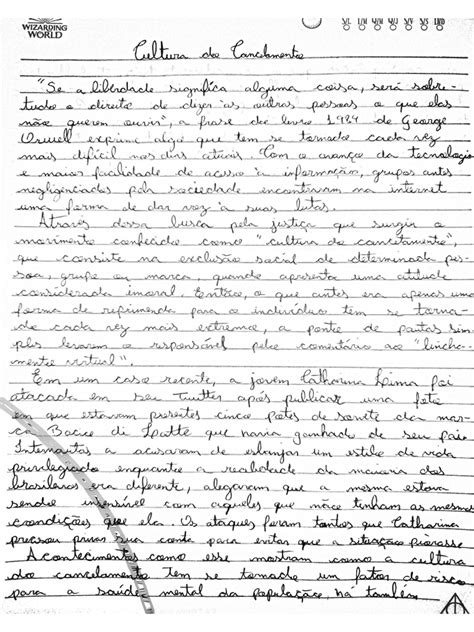 WIZARDING
WORLD
Cultura do Cancelamento
"Se a liberdade significa alguma coisa, será sobre-
tudo o direito de dizer às outras pessoas o que elas
não querem ouvir", a frase do livro 1984 de George
Orwell exprime algo que tem se tornado cada vez
mais difícil nos dias atuais. Com o avanço da tecnologia
e maior facilidade de acesso à informação, grupos antes
negligenciados pela sociedade encontraram na internet
uma forma de dar voz à suas lutas.
Através dessa busca pela justiça que surgiu o
movimento conhecido como "cultura do cancelamento",
que consiste na exclusão social de determinada pes-
soa, grupo ou marca, quando apresenta uma atitude
considerada imoral. Entãoo, o que antes era apenas uma
forma de reprimenda para o indivíduo tem se torna-
do cada vez mais extremo, a ponto de pautas sim-
ples levarem o responsável pelo comentário ao "lincha-
mento virtual".
Em um caso recente, a jovem Catharina Lima foi
atacada em seu Twitter após publicar uma foto
em que estavam presentes cinco potes de sorvete da mar-
ca Bacio di Latte que havia ganhado de seu pai.
Internautas a acusaram de esbanjar um estilo de vida
privilegiado enquanto a realidade da maioria dos
brasileiros era diferente, alegaram que a mesma estava
sendo insensível com aqueles que não tinham as mesmas
condições que ela. Os ataques foram tantos que Catharina
precisou privar sua conta para evitar que a situação piorasse
Acontecimentos como esse mostram como a cultura
do cancelamento tem se tornado um fator de risco
para a saúde mental da população, há também